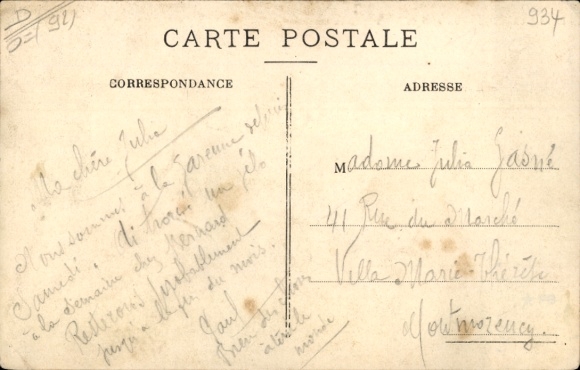 D
D=(92)
934
CARTE POSTALE
CORRESPONDANCE
ADRESSE
Ma chère Julia
Nous sommes à la Garenne depuis
Samedi. trouvé un vélo
à la semaine chez Bernard
Resterons probablement
jusqu'à la fin du mois.
Paul
Bien des choses
à tout le
monde
Madame Julia Gasné
41 Rue du Marché
Villa Marie-Thérèse
Montmorency.